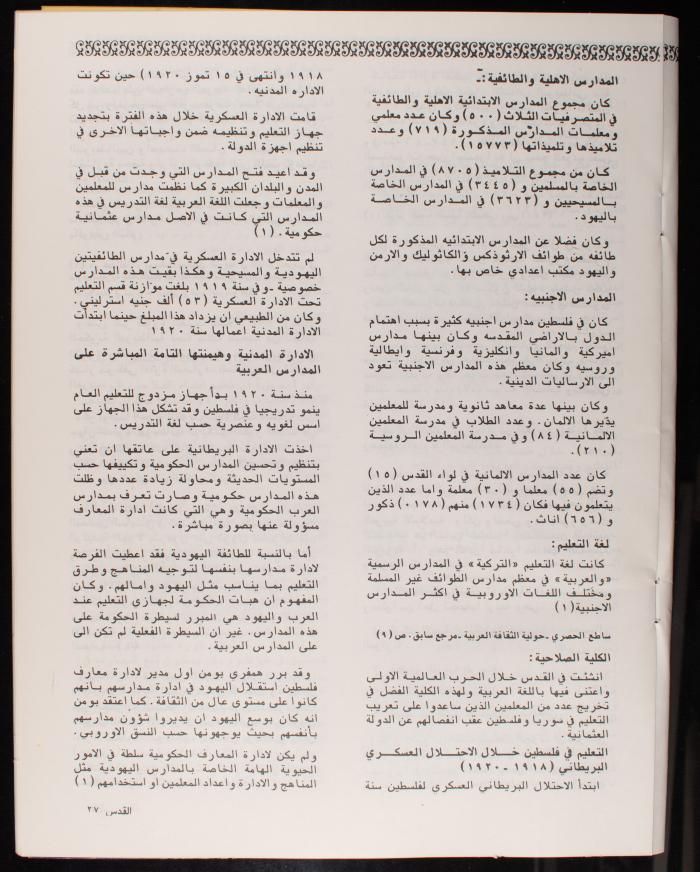 المدارس الاهلية والطائفية :ـ
كان مجموع المدارس الابتدائية الاهلية والطائفية
في المتصرفيات الثلاث (٥٠٠) وكان عدد معلمي
ومعلمات المدارس المذكورة (٧١٩) وعدد
تلاميذها وتلميذاتها (١٥٧٧٣).
كان من مجموع التلاميذ (٨٧٠٥) في المدارس
الخاصة بالمسلمين و (٣٤٤٥) في المدارس الخاصة
بالمسيحيين و (٣٦٢٣) في المدارس الخاصة
باليهود.
وكان فضلا عن المدارس الابتدائيه المذكورة لكل
طائفه من طوائف الارثوذكس والكاثوليك والارمن
واليهود مكتب اعدادي خاص بها.
المدارس الاجنبيه :
كان في فلسطين مدارس اجنبيه كثيرة بسبب اهتمام
الدول بالاراضي المقدسه وكان بينها مدارس
اميركية والمانيا وانكليزية وفرنسية وايطالية
وروسيه وكان معظم هذه المدارس الاجنبية تعود
الى الارساليات الدينية.
وكان بينها عدة معاهد ثانوية ومدرسة للمعلمين
يديرها الالمان. وعدد الطلاب في مدرسة المعلمين
الالمانية (٨٤) وفي مدرسة المعلمين الروسية
(٢١٠).
كان عدد المدارس الالمانية في لواء القدس (١٥)
وتضم (٥٥) معلما و (٣٠) معلمة واما عدد الذين
يتعلمون فيها فكان (١٧٣٤) منهم (٠١٧٨) ذكور
و (٦٥٦) اناث.
لغة التعليم :
كانت لغة التعليم «التركية» في المدارس الرسمية
«والعربية» في معظم مدارس الطوائف غير المسلمة
ومختلف اللغات الاوروبية في اكثر المدارس
الاجنبية (١)
ساطع الحصري ـ حولية الثقافة العربية ـ مرجع سابق . ص (٩)
الكلية الصلاحية :
انشئت في القدس خلال الحرب العالمية الاولى
واعتنى فيها باللغة العربية ولهذه الكلية الفضل في
تخريج عدد من المعلمين الذين ساعدوا على تعريب
التعليم في سوريا وفلسطين عقب انفصالهم عن الدولة
العثمانية.
التعليم في فلسطين خلال الاحتلال العسكري
البريطاني (١٩١٨ ـ ١٩٢٠)
ابتدأ الاحتلال البريطاني العسكري لفلسطين سنة
١٩١٨ وانتهى في ١٥ تموز ١٩٢٠) حين تكونت
الاداره المدنيه.
قامت الادارة العسكرية خلال هذه الفترة بتجديد
جهاز التعليم وتنظيمه ضمن واجباتها الاخرى في
تنظيم اجهزة الدولة.
وقد اعيد فتح المدارس التي وجدت من قبل في
المدن والبلدان الكبيرة كما نظمت مدارس للمعلمين
والمعلمات وجعلت اللغة العربية لغة التدريس في هذه
المدارس التي كانت في الاصل مدارس عثمانية
حكومية. (١)
لم تتدخل الادارة العسكرية في مدارس الطائفيتين
اليهودية والمسيحية وهكذا بقيت هذه المدارس
خصوصية ـ وفي سنة ١٩١٩ بلغت موازنة قسم التعليم
تحت الادارة العسكرية (٥٣) ألف جنيه استرليني.
وكان من الطبيعي ان يزداد هذا المبلغ حينما ابتدأت
الادارة المدنية اعمالها سنة ١٩٢٠
الادارة المدنية وهيمنتها التامة المباشرة على
المدارس العربية
منذ سنة ١٩٢٠ بدأ جهاز مزدوج للتعليم العام
ينمو تدريجيا في فلسطين وقد تشكل هذا الجهاز على
اسس لغويه وعنصرية حسب لغة التدريس.
اخذت الادارة البريطانية على عاتقها ان تعني
بتنظيم وتحسين المدارس الحكومية وتكييفها حسب
المستويات الحديثة ومحاولة زيادة عددها وظلت
هذه المدارس حكومية وصارت تعرف بمدارس
العرب الحكومية وهي التي كانت ادارة المعارف
مسؤولة عنها بصورة مباشرة.
أما بالنسبة للطائفة اليهودية فقد اعطيت الفرصة
لادارة مدارسها بنفسها لتوجيه المناهج وطرق
التعليم بما يناسب مثل اليهود وامالهم. وكان
المفهوم ان هبات الحكومة لجهازي التعليم عند
العرب واليهود هي المبرر لسيطرة الحكومة على
هذه المدارس. غير ان السيطرة الفعلية لم تكن الى
على المدارس العربية.
وقد برر همفري بومن اول مدير لادارة معارف
فلسطين استقلال اليهود في ادارة مدارسهم بأنهم
كانوا على مستوى عال من الثقافة. كما اعتقد بومن
انه كان بوسع اليهود ان يديروا شؤون مدارسهم
بأنفسهم بحيث يوجهونها حسب النسق الاوروبي.
ولم يكن لادارة المعارف الحكومية سلطة في الامور
الحيوية الهامة الخاصة بالمدارس اليهودية مثل
المناهج والادارة واعداد المعلمين او استخدامهم (١)
القدس ٢٧